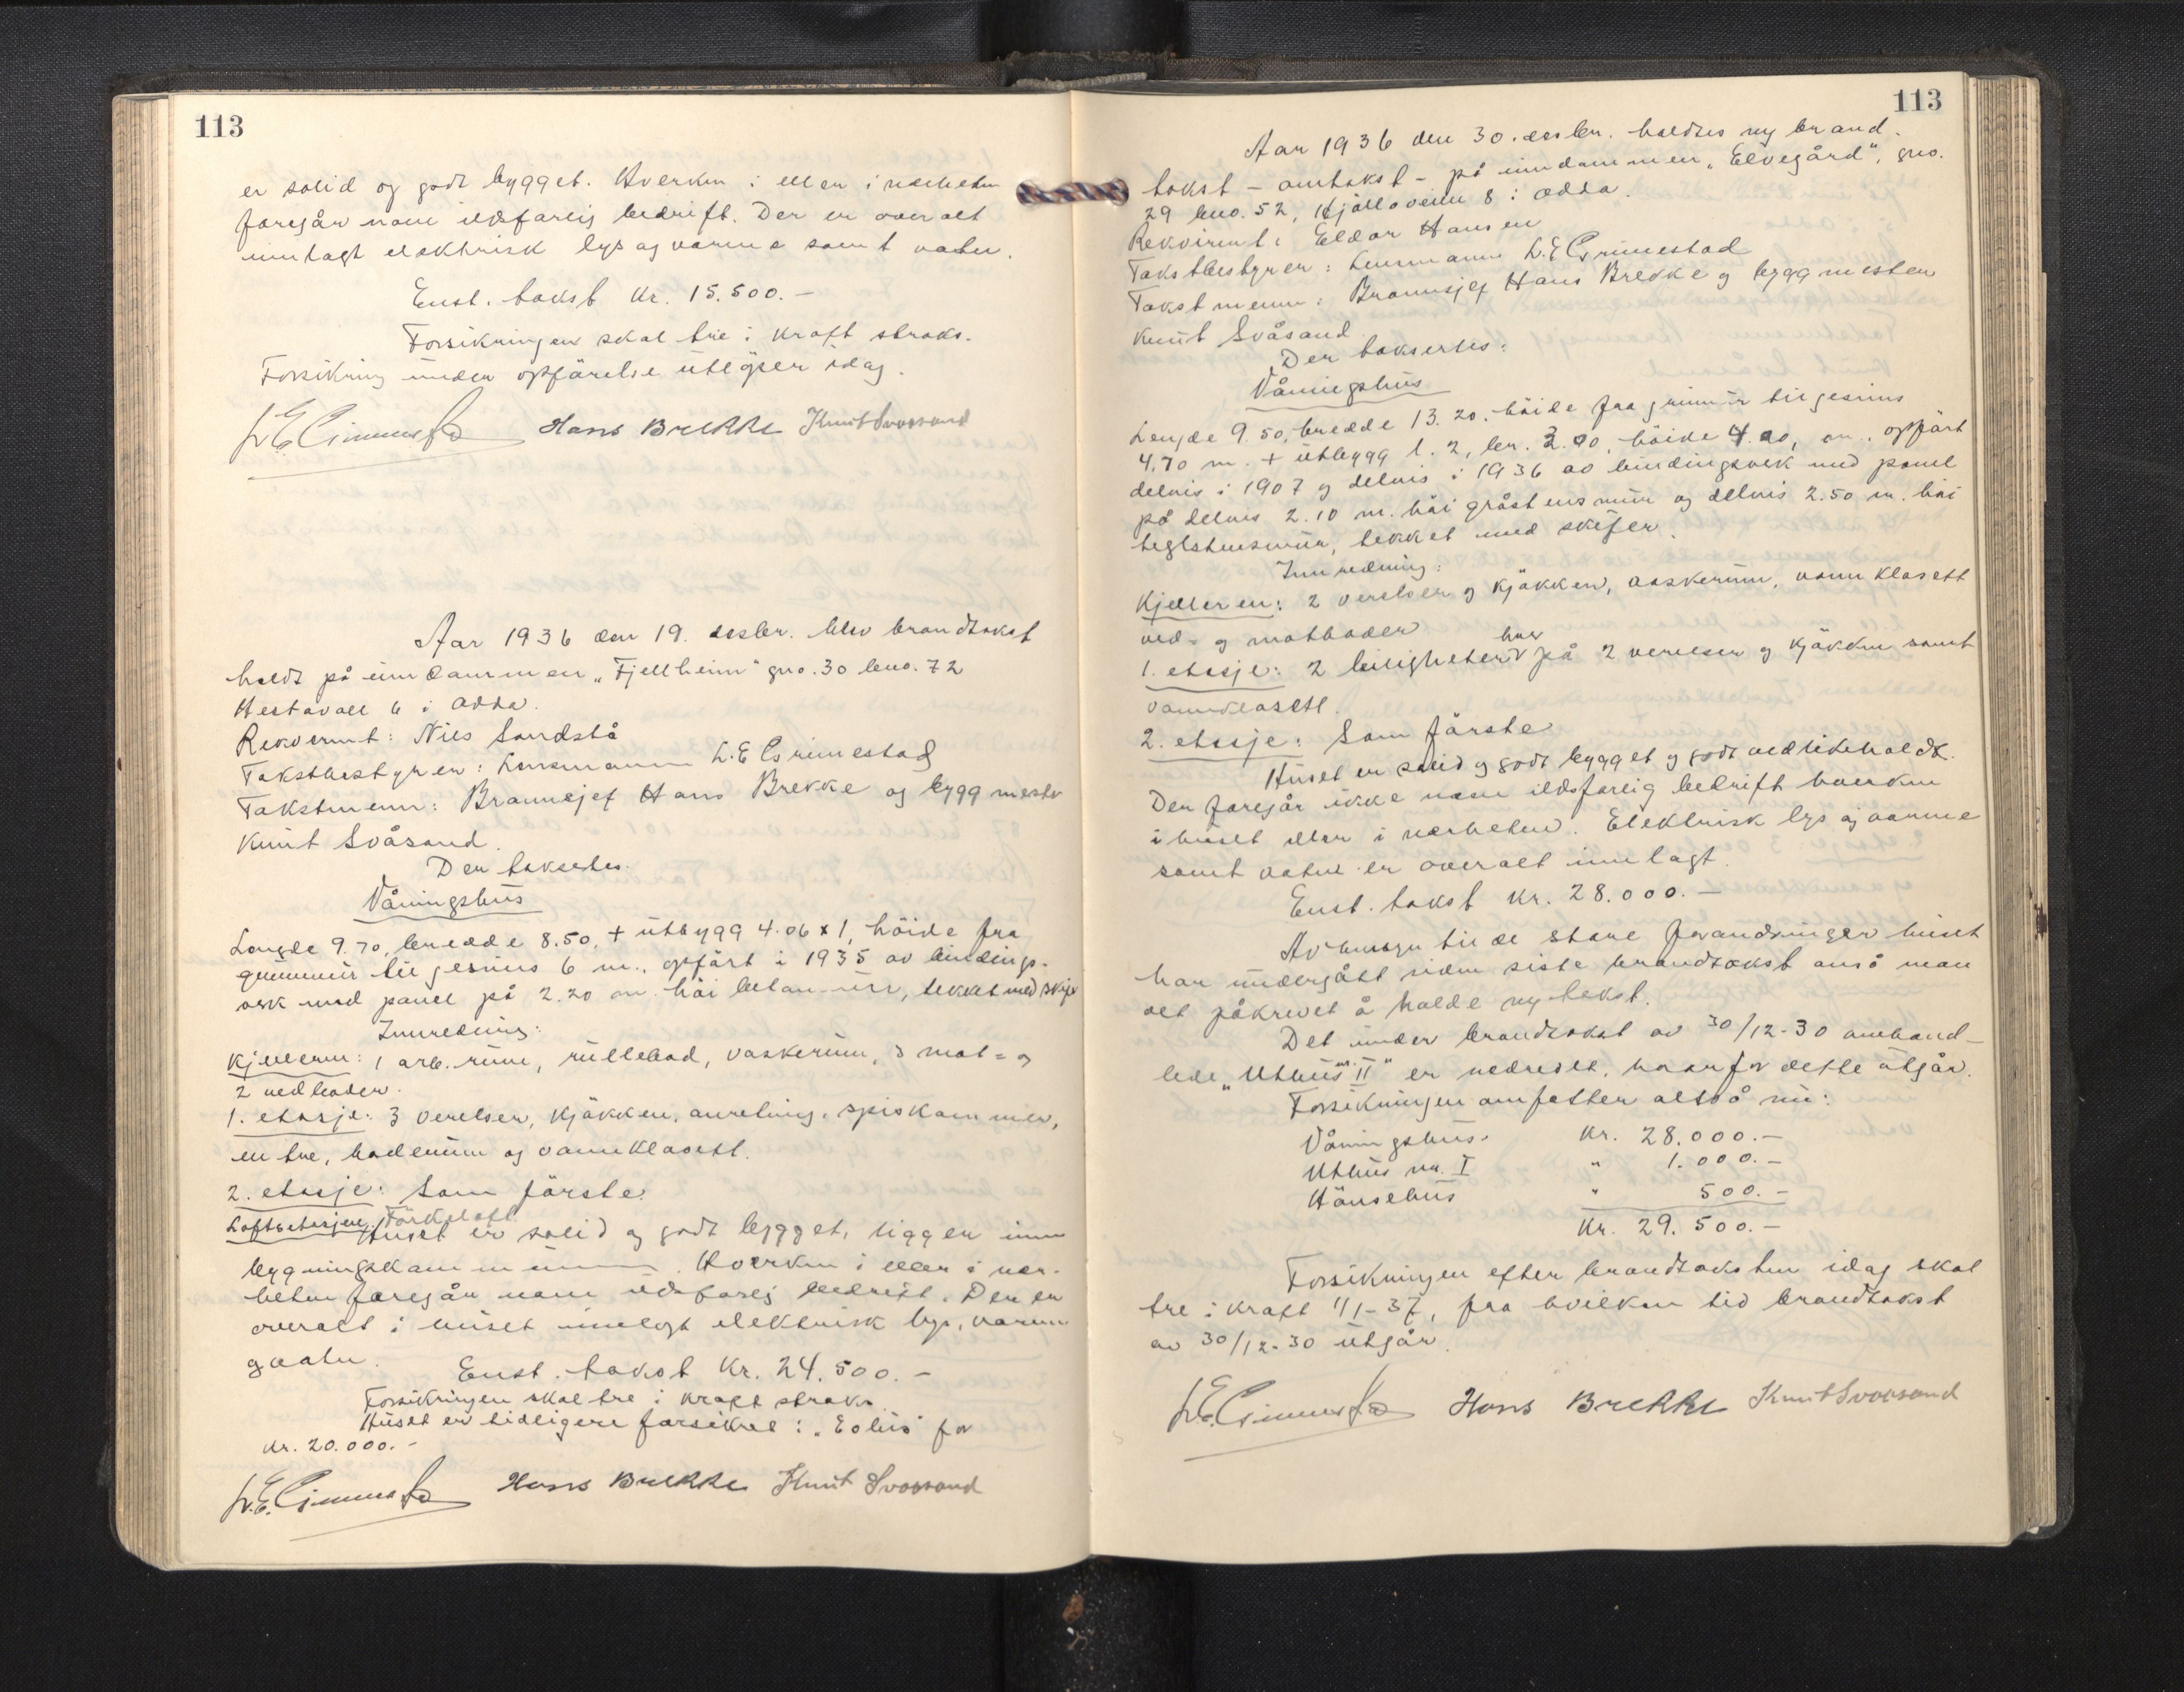 113
er solid og godt bygget. Hverken i eller i nærheten
foregår noen ildsfarlig bedrift. Der er overalt
innlagt elektrisk lys og varme samt vatn.
Enst. takst kr. 15.500.-
Forsikringen skal tre i kraft straks.
Forsikring under opførelse utløper idag.
L. E. Grimestad Hans Brekke Knut Svaasand
Aar 1936 den 19. desbr. blev brandtakst
holdt på eiendommen „Fjellheim“ gno. 30 bno. 72
Hestavoll 6 i Odda.
Rekvirent: Nils Sandstå
Takstbestyrer: Lensmann L. E Grimestad
Takstmenn: Brannsjef Hans Brekke og byggmestr
Knut Svåsand.
Der takseres:
Våningshus
Lengde 9.70, bredde 8.50, + utbygg 4.06 x 1, höide fra
grunnmur til gesims 6 m., opført i 1935 av bindings-
verk med panel på 2.20 m. høi betonmur, tekket med skifer
Innredning:
Kjelleren: 1 arb. rum, rullebod, vaskerum, 3 mat- og
2 vedboder.
1. etasje: 3 verelser, kjøkken, anretning, spiskammer,
entre, baderum og vannklosett.
2. etasje: Som første.
Loftsetasjen: Tørkeloft
Huset er solid og godt bygget, ligger inn
bygningskommunen. Hverken i eller i nær-
heten foregår noen ildsfarlig bedrift. Der er
overalt i huset innlagt elektrisk lys, varme
og vatn.
Enst. takst kr. 24.500.-
Forsikringen skal tre i kraft straks.
Huset er tidligere forsikret i „Eolus“ for
kr. 20.000.-
L. E. Grimestad Hans Brekke Knut Svaasand
113
Aar 1936 den 30. desbr. holdtes ny brand-
takst - omtakst - på eiendommen „Elvegård“, gno.
29 bno. 52, Hjølloveien 8 i Odda.
Rekvirent: Eldar Hansen
Takstbestyrer: Lensmann L. E Grimestad
Takstmenn: Brannsjef Hans Brekke og byggmester
Knut Svåsand
Der takseres:
Våningshus
Lengde 9.50, bredde 13.20. høide fra grunnmur til gesims
4.70 m. + utbygg l. 2, br. 2.00, høide 4.20, m., opført
delvis i 1907 og delvis i 1936 av bindingsverk med panel
på delvis 2.10 m. høi gråstensmur og delvis 2.50 m. høi
teglstensmur, tekket med skifer.
Innredning:
Kjelleren: 2 verelser og kjøkken, vaskerum, vannklosett
ved- og matboder
1. etasje: 2 leiligheter hver på 2 verelser og kjøkken samt
vannklosett.
2. etasje: Som første
Huset er solid og godt bygget og godt vedlikeholdt.
Der foregår ikke noen ildsfarlig bedrift hverken
i huset eller i nærheten. Elektrisk lys og varme
samt vatn er overalt innlagt.
Enst. takst kr. 28.000.-
Av hensyn til de store forandringer huset
har undergått siden siste brandtakst anså man
det påkrevet å holde ny takst.
Det under brandtakst av 30/12-30 omhand-
lede „Uthus nr. II“ er nedrevet, hvorfor dette utgår.
Forsikringen omfatter altså nu:
Våningshus. kr. 28.000.-
Uthus nr. I " 1.000.-
Hønsehus " 500.-
Kr. 29.500.-
Forsikringen efter brandtaksten idag skal
tre i kraft 1/1-37, fra hvilken tid brandtakst
av 30/12-30 utgår.
L. E. Grimestad Hans Brekke Knut Svaasand